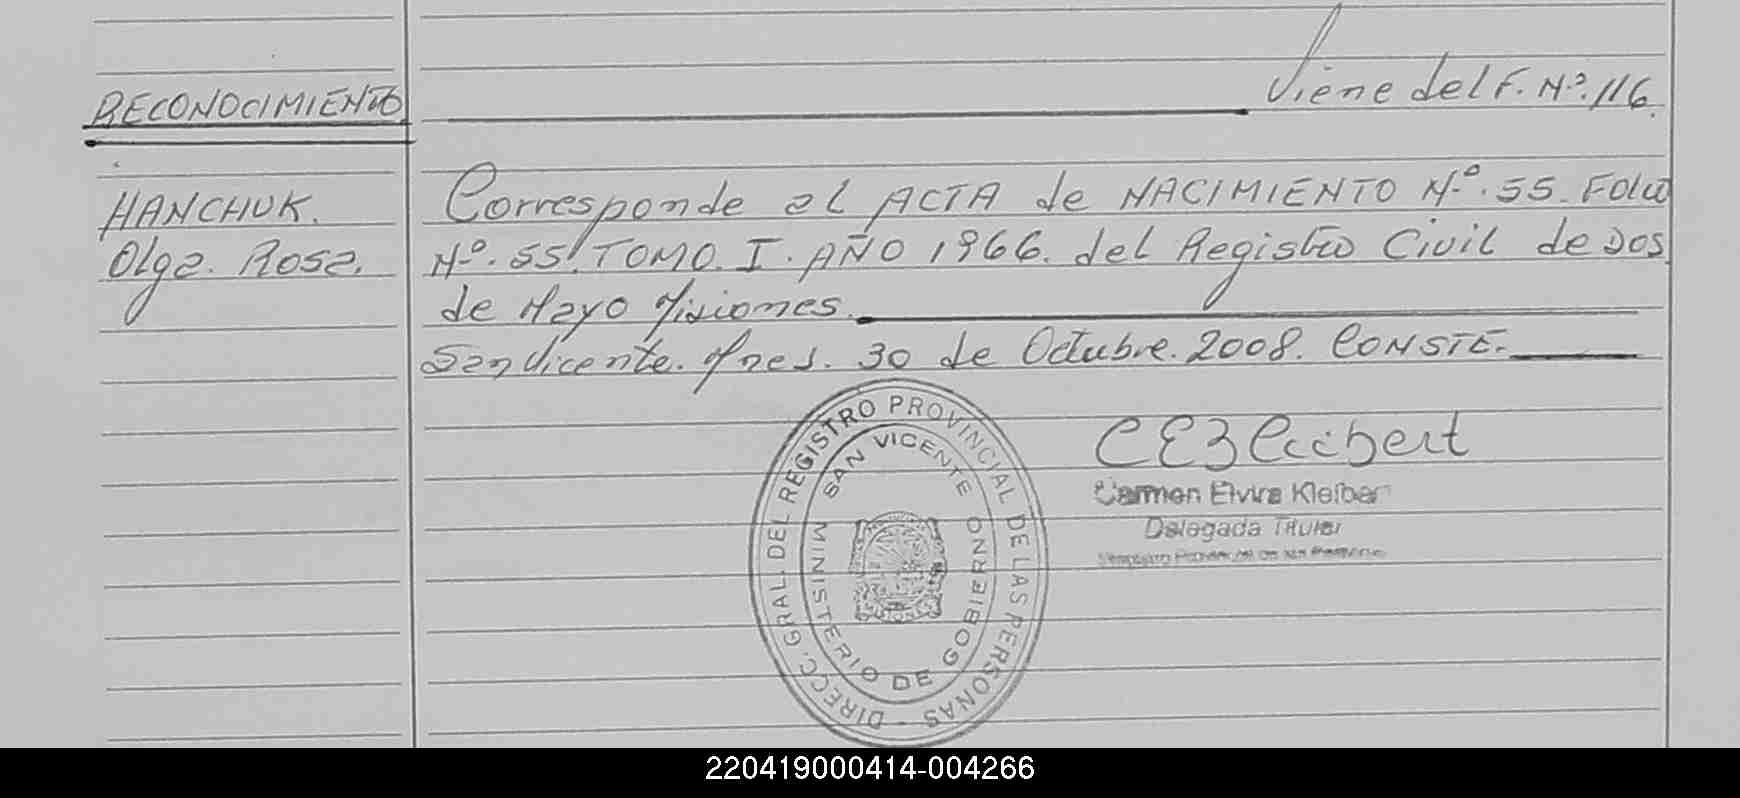 Viene del F. Nº. 116.
RECONOCIMIENTO
HANCHUK.
Olga. Rosa.
Corresponde al ACTA de NACIMIENTO Nº. 55. Folio
Nº. 55. TOMO. I. AÑO 1966. del Registro Civil de Dos
de Mayo Misiones.
San Vicente. Mnes. 30 de Octubre. 2008. CONSTE.
DIRECC. GRAL. DEL REGISTRO PROVINCIAL DE LAS PERSONAS -
SAN VICENTE
MINISTERIO DE GOBIERNO
MISIONES
CEKleibert
Carmen Elvira Kleiber
Delegada Titular
Registro Provincial de las Personas
220419000414-004266